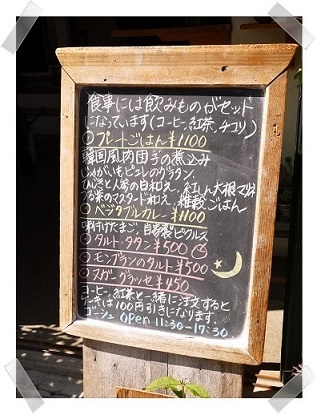 食事には飲みものがセット
になっています(コーヒー,紅茶,チコリ)
◎プレートごはん¥1100
韓国風肉団子の煮込み
じゃがいもピュレのグラタン、
ひじきと人参の白和え、紅しん大根マリネ
菜のマスタード和え、雑穀ごはん
◎ベジタブルカレー¥1100
味付けたまご、自家製ピクルス
◎タルト・タタン¥500
◎モンブランのタルト¥500
◎スガーグラッセ¥450
コーヒー、紅茶と一緒に注文すると
ケーキは100円引きになります。
ゴーシュ OPEN 11:30-17:30